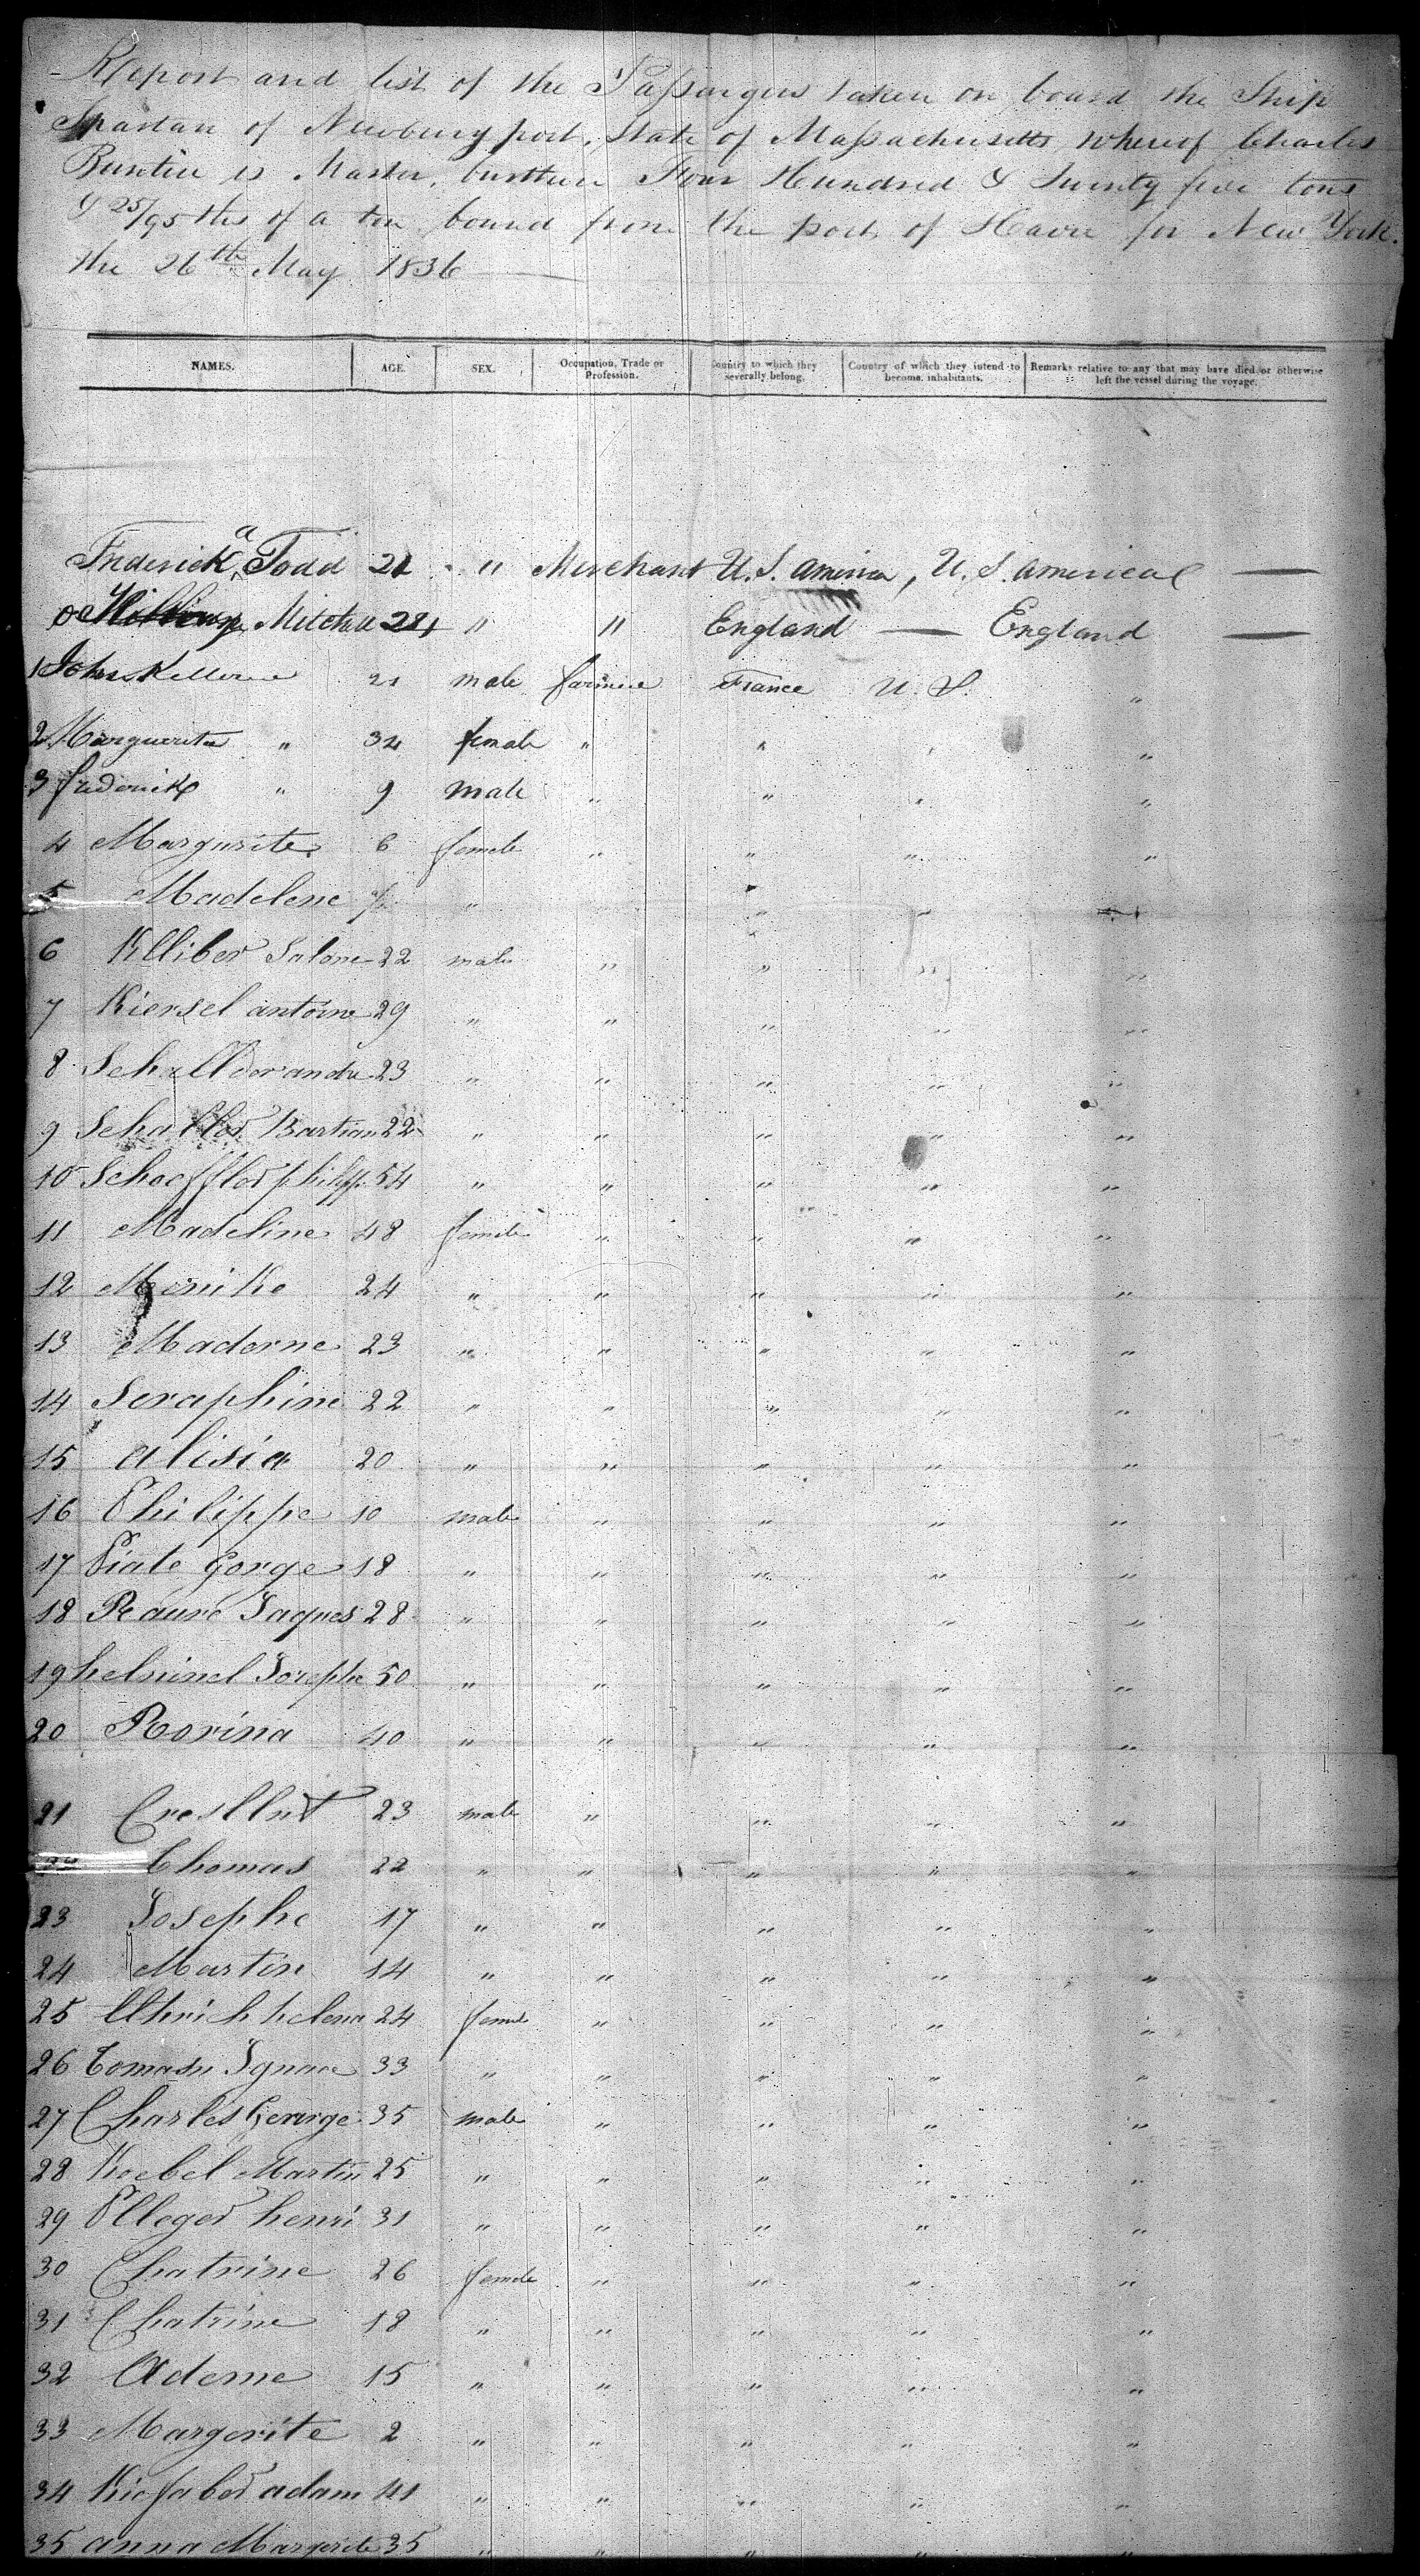 Report and list of the Passengers taken on board the Ship
Spartan of Newburyport, State of Massachusetts whereof Charles
Buntin is Master, burthen Four Hundred & Twenty five tons
& 25/95ths of a ton bound from the port of Havre for New York.
the 26th May 1836
NAMES. AGE. SEX. Occupation, Trade or Profession. Country to which they severally belong. Country of which they intend to become inhabitants. Remarks relative to any that may have died or otherwise left the vessel during the voyage.
Frederick a Todd 21 " Merchant U.S. America, U.S. America —
Mitchell " " England — England —
1 John 21 male farmer France U.S. "
2 Marguerite " 34 female " " " "
3 frederike " 9 male " " " "
4 Margurite 6 female " " " "
5 Madelene " " "
6 Klliber Salone 22 male " " " "
7 Kiersel antoine 29 " " " " "
8 andre 23 " " " " "
9 Schaller Bastian 22 " " " " "
10 Schoeffler philipp 54 " " " " "
11 Madeline 48 female " " " "
12 24 " " " " "
13 Maderne 23 " " " " "
14 Seraphine 22 " " " " "
15 alisia 20 " " " " "
16 Philippe 10 male " " " "
17 Piate Gorge 18 " " " " "
18 Reaure Jaques 28 " " " " "
19 Josephe 50 " " " " "
20 Rorina 40 " " " " "
21 23 male " " " "
22 Thomas 22 " " " " "
23 Josephe 17 " " " " "
24 Martin 14 " " " " "
25 helena 24 female " " " "
26 Tomasn Ignace 33 " " " " "
27 Charles George 35 male " " " "
28 Koebel Martin 25 " " " " "
29 Plleger henri 31 " " " " "
30 Chatrine 26 female " " " "
31 Chatrine 18 " " " " "
32 Ademe 15 " " " " "
33 Margerite 2 " " " " "
34 Kiefaber adam 41 " " " " "
35 anna Margerite 35 " " " " "